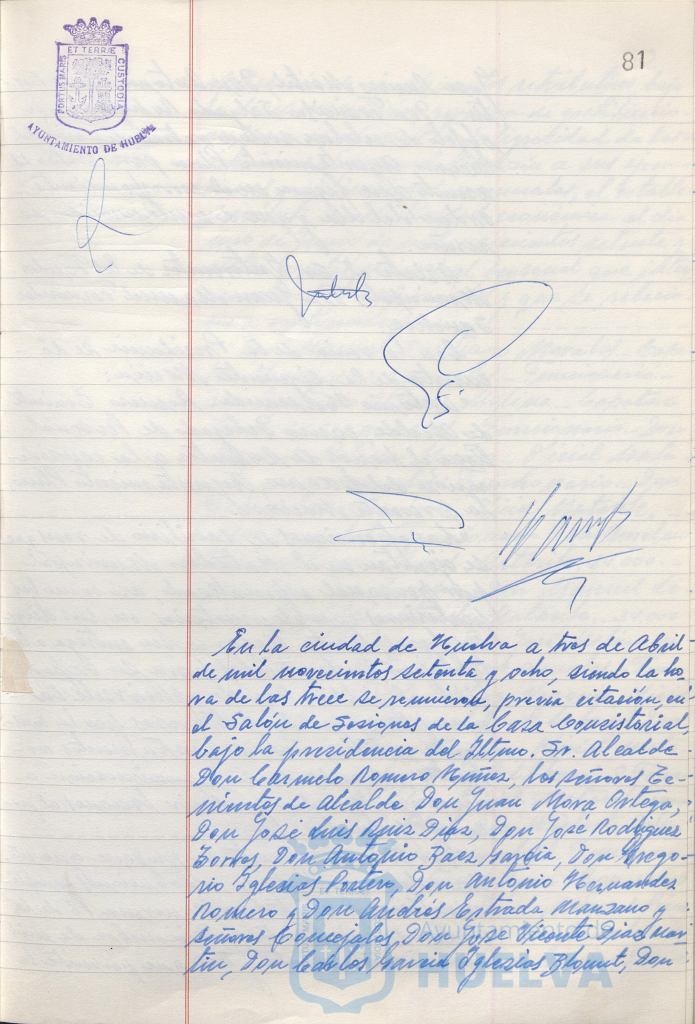 81
PORTUS MARIS
ET TERRÆ
CUSTODIA
AYUNTAMIENTO DE HUELVA
En la ciudad de Huelva a tres de Abril
de mil novecientos setenta y ocho, siendo la ho-
ra de las trece se reunieron, previa citación, en
el Salón de Sesiones de la Casa Consistorial,
bajo la presidencia del Iltmo. Sr. Alcalde
Don Carmelo Romero Núñez, los señores Te-
nientes de Alcalde Don Juan Mora Ortega,
Don José Luis Ruiz Díaz, Don José Rodríguez
Don Antonio Baez García, Don Grego-
rio Iglesias Portero, Don Antonio Hernandez
Romero y Don Andrés Estrada Manzano y
señores Concejales, Don José Vicente Diaz Mar-
tín, Don Carlos García Iglesias Don
Ayuntamiento de
HUELVA